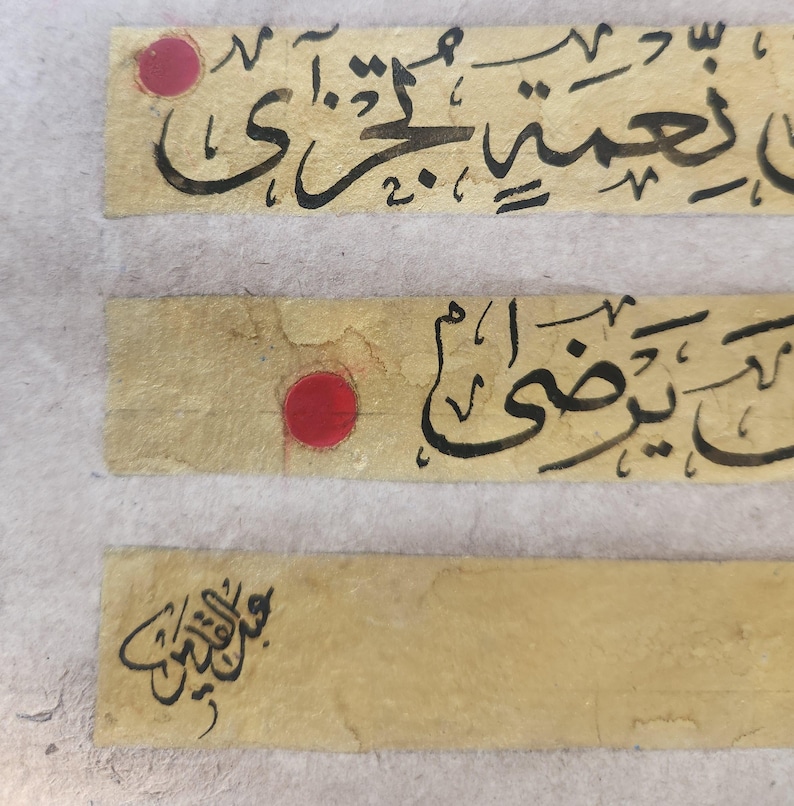 نِّعْمَةٍ تُجْزَىٰ
يَرْضَىٰ
عبد القدير